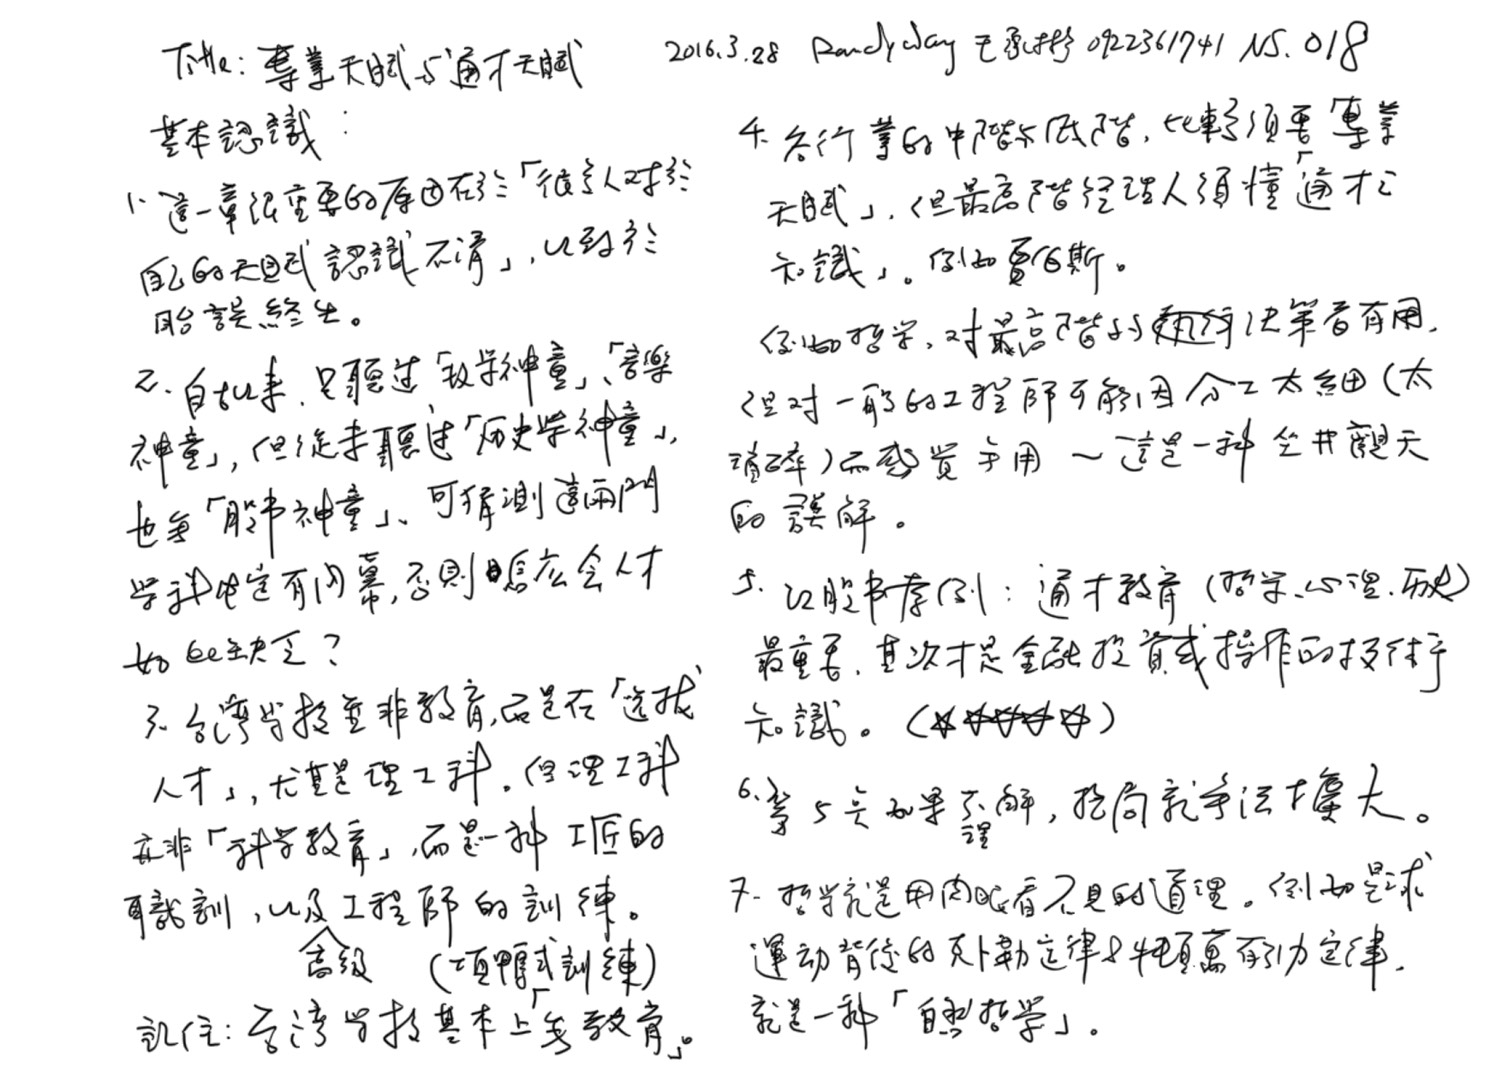 Title: 專業天賦与通才天賦
2016.3.28 Randy Way 王承 0922361741 NS. 018
基本認識:
1. 這一章很重要的原因在於「很多人对於
自己的天賦認識不清」,以致於
貽誤終生。
2. 自古以來,只聽过「数学神童」、「音樂
神童」,但從未聽过「历史学神童」,
也無「股市神童」、可猜測這兩門
学科肯定有內幕,否則怎広会人才
如此缺乏?
3. 台湾学校並非教育,而是在「选拔
人才」,尤其是理工科。但理工科
亦非「科学教育」,而是一种工匠的
職訓,以及高級工程師的訓練。
(填鴨式訓練)
記住:台湾学校基本上「無教育」。
4. 各行業的中階与低階,比較須要「專業
天賦」,但最高階经理人須懂「通才之
知識」。例如賈伯斯。
例如哲学,对最高階的決策者有用,
但对一般的工程師可能因分工太細(太
瑣碎)而感覚無用~這是一种坐井觀天
的誤解。
5. 以股市為例:通才教育(哲学、心理、历史)
最重要,其次才是金融投資或操作的技術与
知識。(☆☆☆☆☆)
6. 第5点如果不理解,格局就無法扩大。
7. 哲学就是用肉眼看不見的道理。例如星球
運动背後的克卜勒定律与牛頓萬有引力定律,
就是一种「自然哲学」。